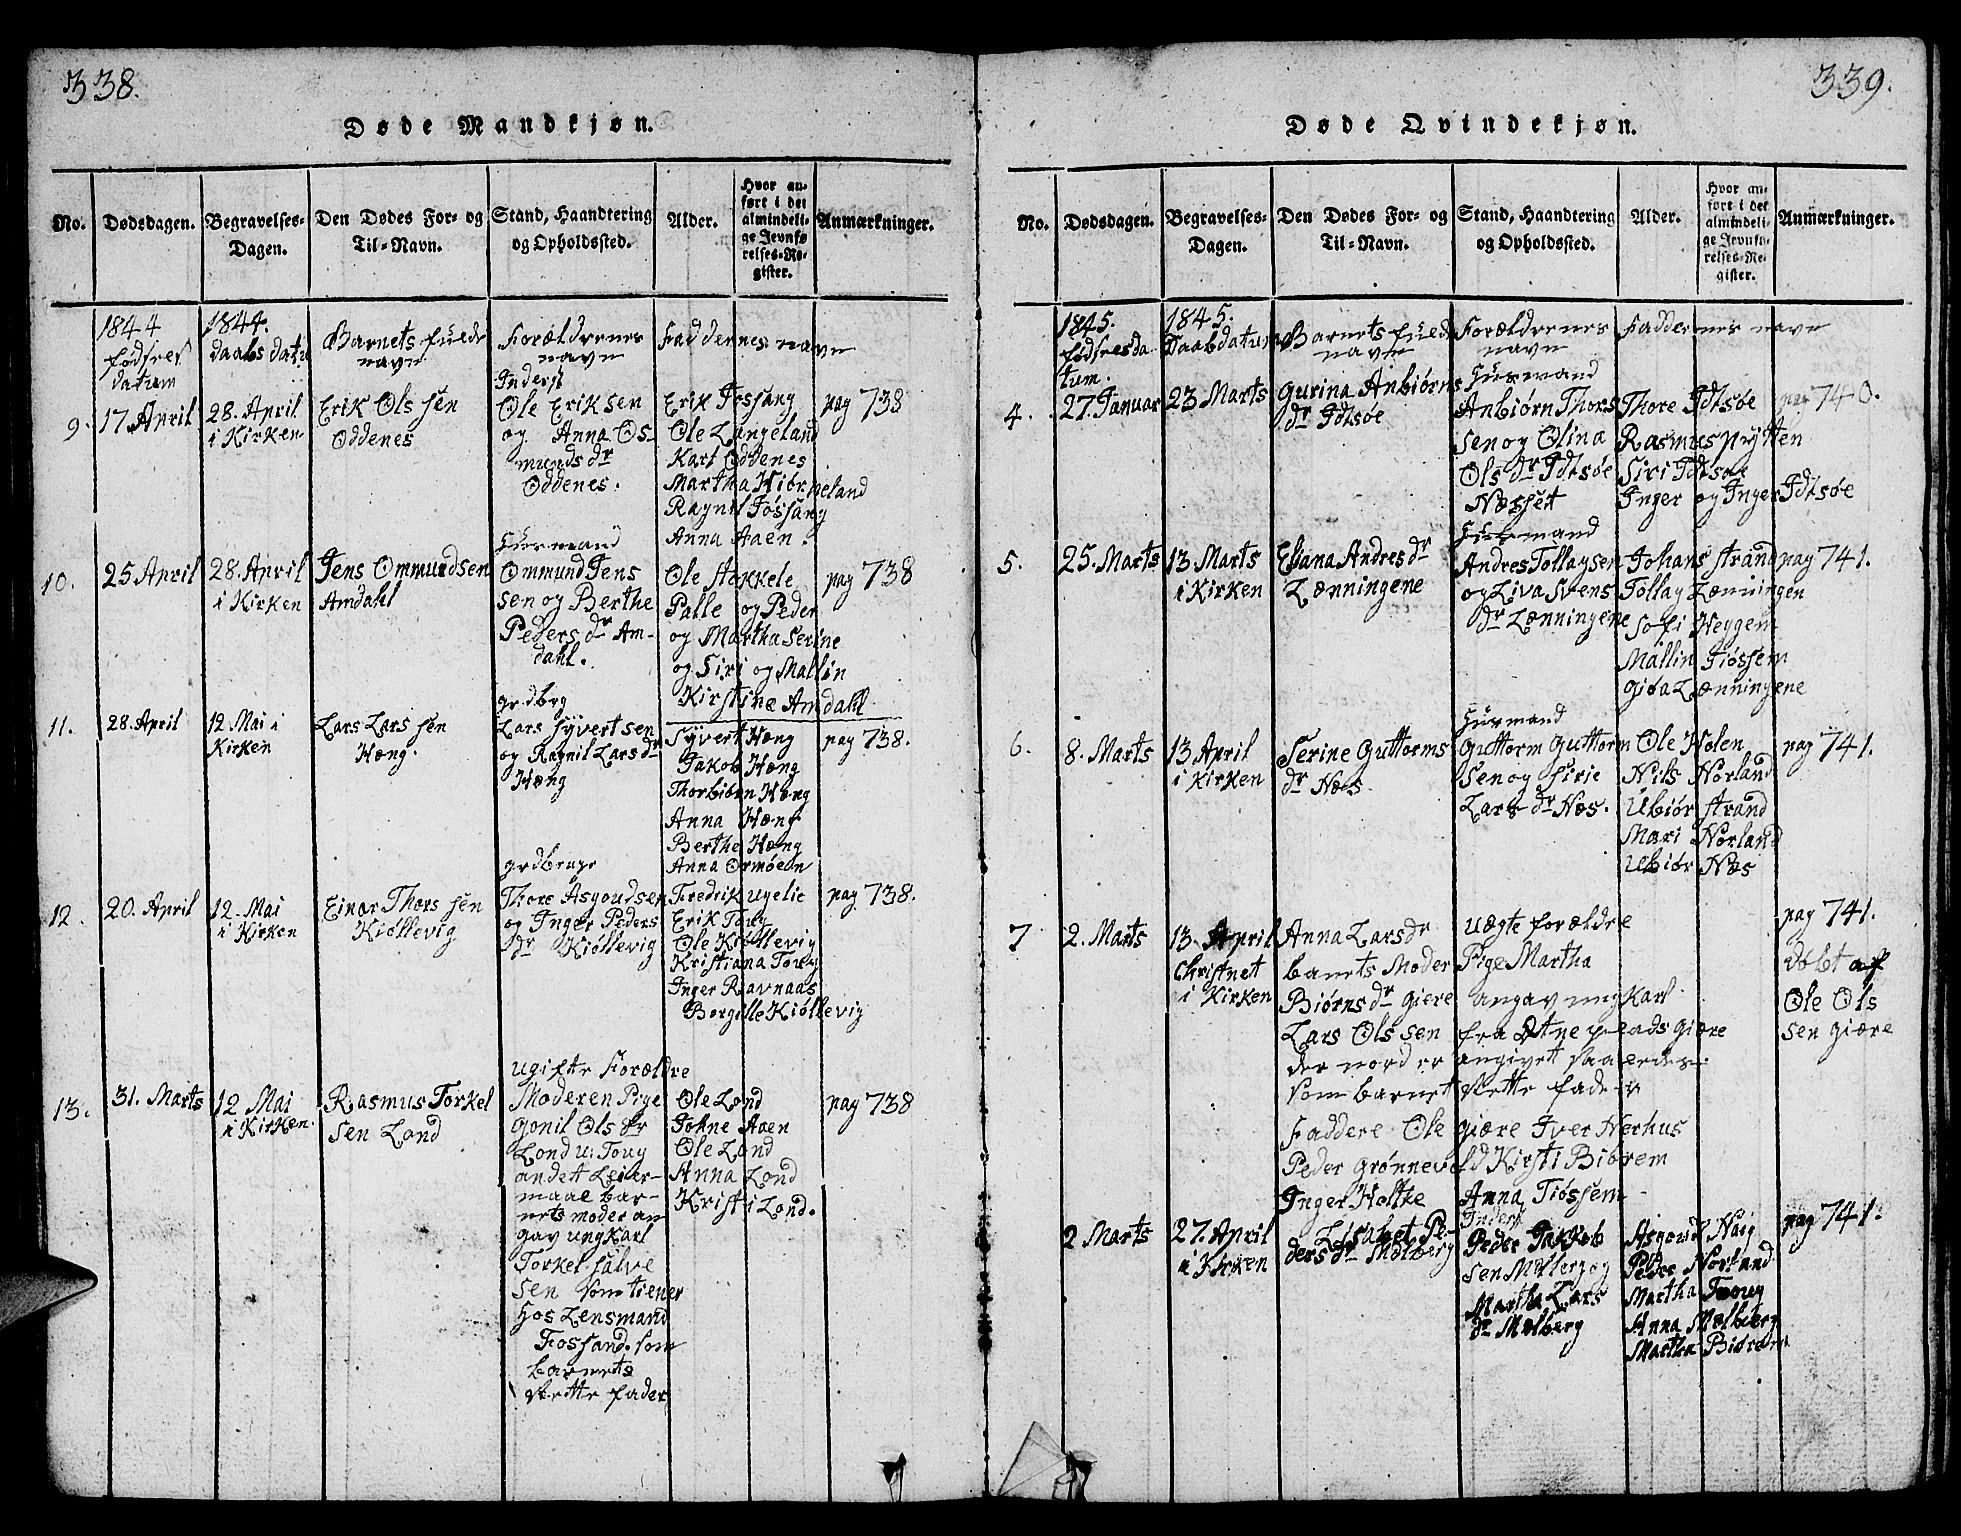 338.
Døde Mandkjøn.
No. Dødsdagen. Begravelses-Dagen. Den Dødes For- og Til-Navn. Stand, Haandtering og Opholdssted. Alder. Hvor anført i det almindelige Jevnførelses-Register. Anmærkninger.
1844 fødsels datum 1844. daabs datu Barnets fulde navn Forældrenes navn Faddernes navn
9. 17. April 28. April i Kirken Erik Ols sen Oddenes
Inderst
Ole Eriksen
og Anna Os-
munds dr
Oddenes.
Erik Fossang
Ole Langeland
Kari Oddenes
Martha Hiørneland
Ragnil Fossang
Anna Aaen.
pag 738
10. 25 April 28. April i Kirken Jens Ommundsen Amdahl
Huusmand
Ommund Jens
sen og Berthe
Peders dr Am-
dahl.
Ole Stokkele
Palle og Peder
og Martha Serine
og Siri og Mallin
Kirstine Amdahl
pag 738
11. 28. April 12 Mai i Kirken Lars Lars sen Hæng.
grdbrg
Lars Syvertsen
og Ragnil Lars dr
Hæng
Syvert Hæng
Jakob Hæng
Thorbiøen Hæng
Anna Hæng
Berthe Hæng
Anna Ormøen
pag 738.
12. 20. April 12. Mai i Kirken Einar Thors sen Kiøllevig
grdbruge
Thore Asgoudsen
og Inger Peders
dr Kiøllevig
Fredrik ugelie
Erik Touy
Ole Kiøllevig
Kristiana Touy
Inger Ravnaas
Borgille Kiøllevig
pag 738.
13. 31. Marts 12 Mai i Kirken. Rasmus Torkel sen Lond
ugifte Forældre
Moderen Pige
Gonil Ols dr
Lond u: Touy
andet Leier-
maal bar-
nets moder an
gav ungkarl
Torkel Salve
sen som tiener
hos Lensmand
Fossand. som
barnets
rette fader
Ole Lond
Johne Aaen
Ole Lond
Anna Lond
Kristi Lond.
pag 738
339.
Døde Qvindekjøn.
No. Dødsdagen. Begravelses-Dagen. Den Dødes For- og Til-Navn. Stand, Haandtering og Opholdssted. Alder. Hvor anført i det almindelige Jevnførelses-Register. Anmærkninger.
1845. fødselsdatum. 1845. Daabdatum Barnets fulde navn Forældrenes navn Faddernes navn
4. 27. Januar 23 Marts Gurina Anbiørns dr Idtsøe
Huusmand
Anbiørn Thors
sen og Olina
Ols dr Idtsøe
Næsset
Thore Idtsøe
Rasmus Nytten
Siri Idtsøe
Inger og Inger Idtsøe
pag 740.
5. 25. Marts 13 Marts i Kirken Eliana Andres dr Lænningene
Huusmand
Andres Tollagsen
og Liva Svens
dr Lænningene
Johans strand
Tollag Lænningen
Sofi Heggem
Mallin Tiøssem
Giøa Lænningene
pag 741.
6. 8. Marts 13 April i Kirken Serine Guttorms dr Næs
Huusmand
Guttorm Guttorm
sen og Sirie
Lars dr Næs.
Ole Holen
Nils Norland
Ubiør strand
Mari Norland
Ubiør Næs
pag 741.
7 2. Marts 13. April Christnet i Kirken
Anna Lars dr uægte forældre
barnets Moder Pige Martha
Biørns dr Giere angav ung Karl
Lars Ols sen fra Giære
der nord er angivet
som barnet rette fader
Faddere Ole Giære Iver Nerhus
Peder Grønnevold Kirsti Biørem
Inger Holtke Anna Tiøssem
pag 741.
døbt af
Ole Ols
sen Giære
2 Marts 27. April i Kirken Lisabet Peders dr Mølberg
Inderst
Peder Jakkob
sen Mølberg og
Martha Lars
dr Mølberg
Asgoud Haig
Peder Norland
Martha Touy
Anna Mælberg
Martha Biørem
pag 741.